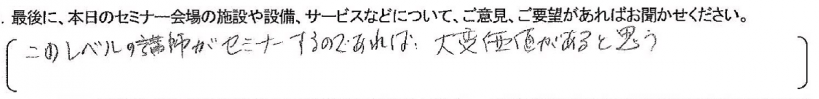 . 最後に、本日のセミナー会場の施設や設備、サービスなどについて、ご意見、ご要望があればお聞かせください。
このレベルの講師がセミナーするのであれば、大変価値があると思う